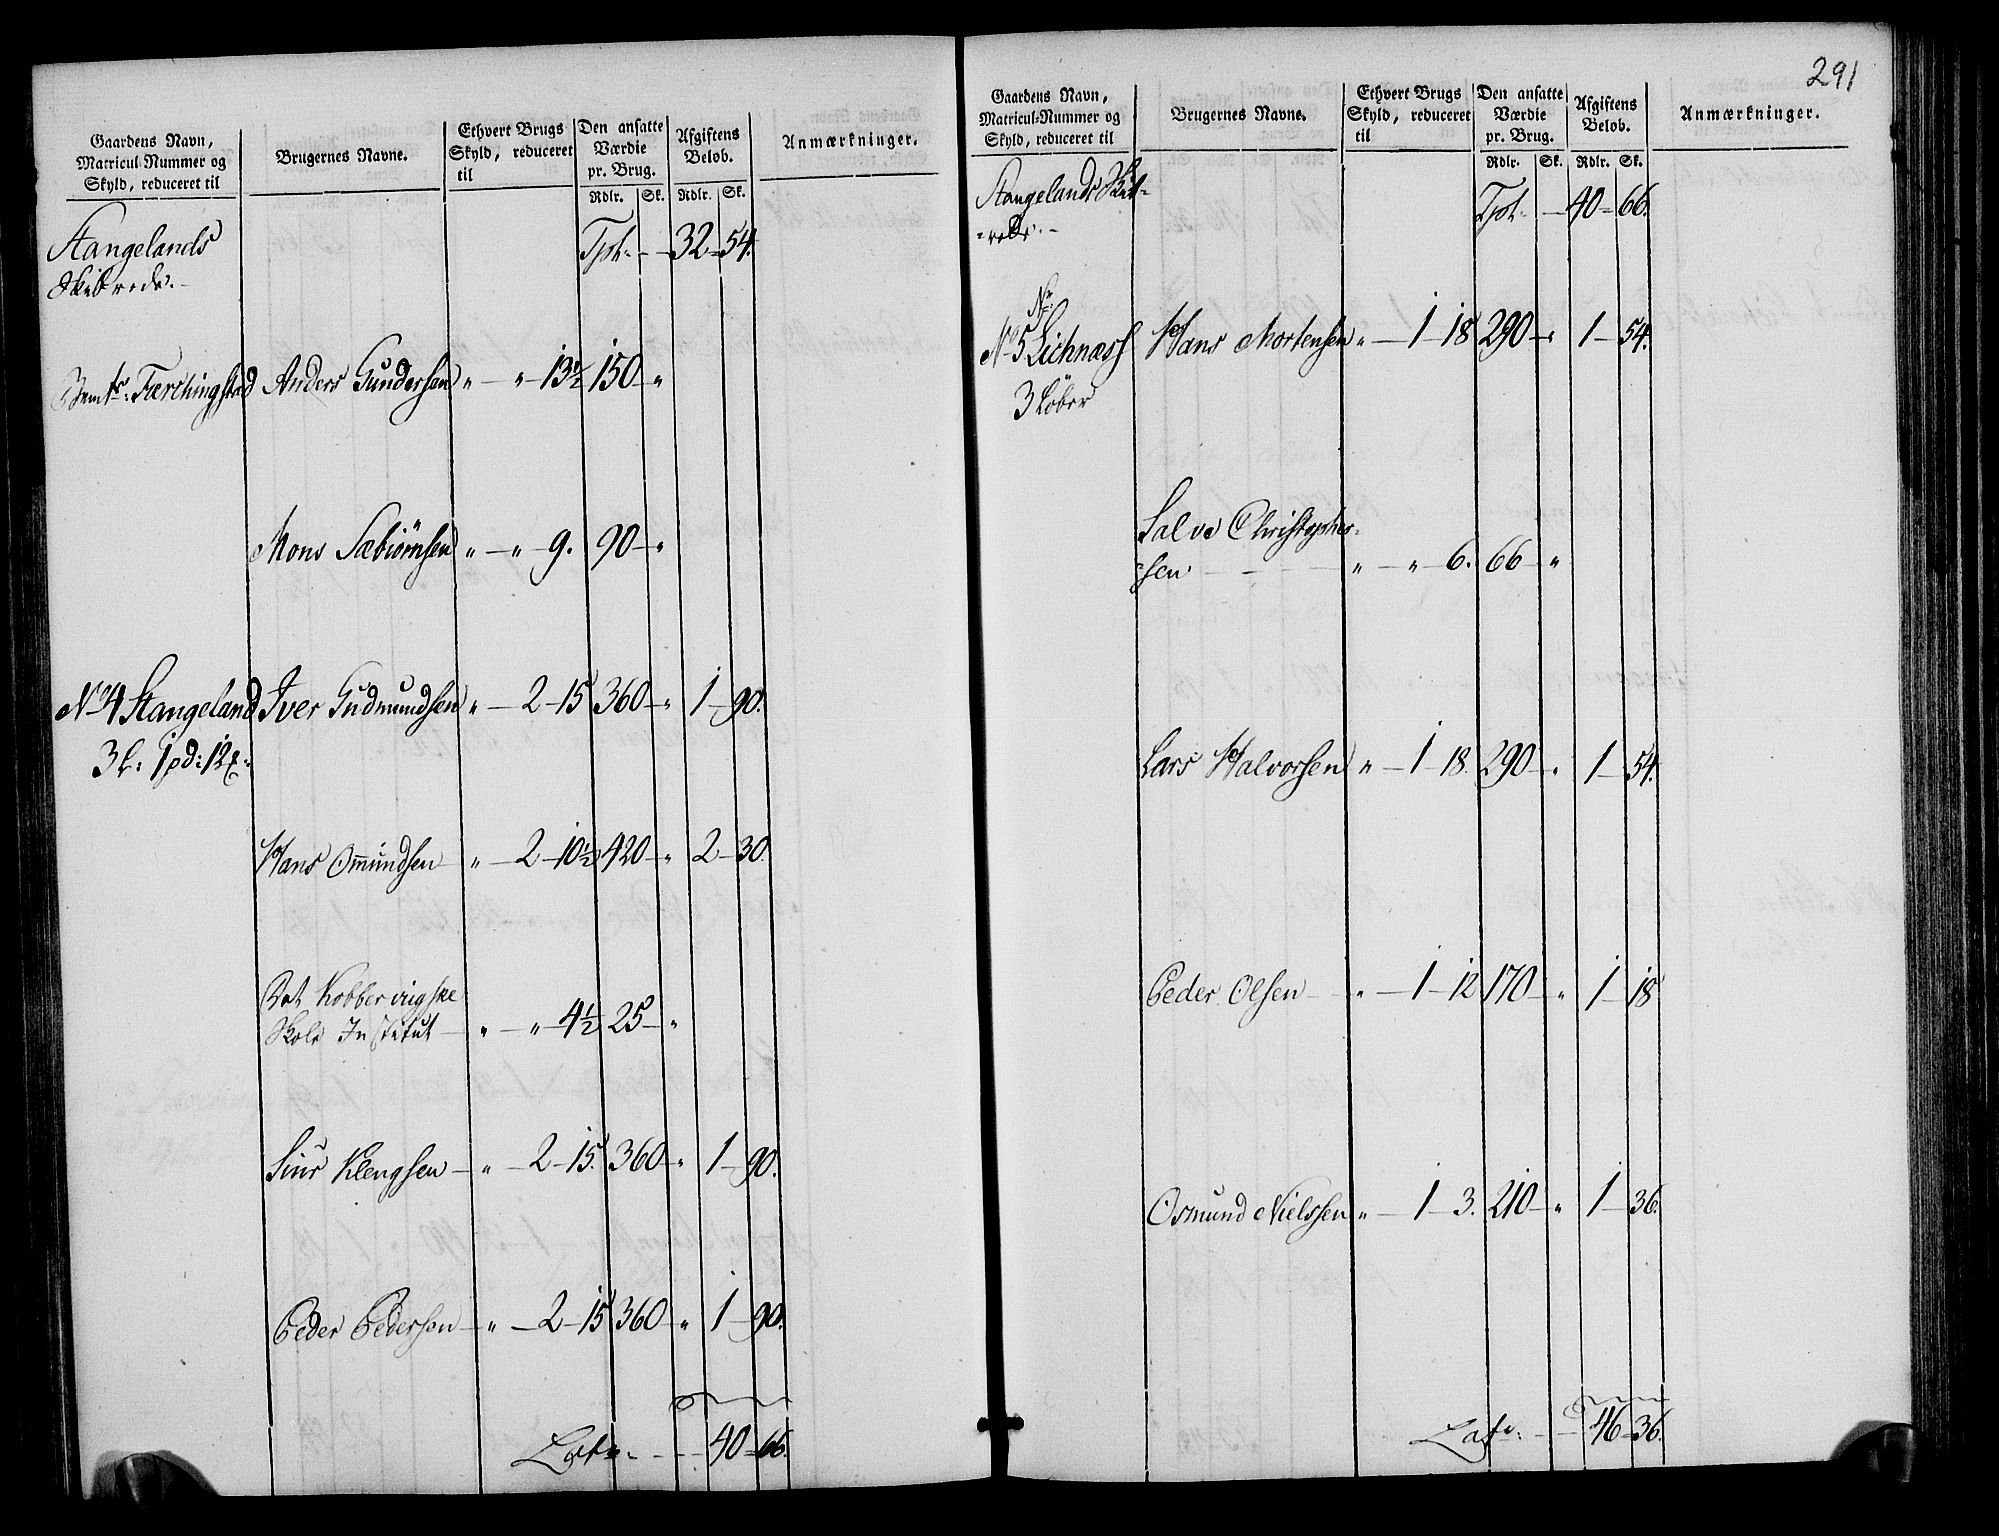 Gaardens Navn,
Matricul-Nummer og
Skyld, reduceret til
Brugernes Navne.
Ethvert Brugs
Skyld, reduceret
til
Den ansatte
Værdie
pr. Brug.
Rdlr. Sk.
Afgiftens
Beløb.
Rdlr. Sk.
Anmærkninger.
Stangelands
Skibrede.
Tpt. — 32 - 54.
Færchingstad Anders Gundersen " — " — 13½ 150 — "
Mons Sæbiörnsen " — " — 9. 90 — "
No 4 Stangeland Iver Gudmundsen " — 2 — 15 360 — " 1 — 90.
3 L: 1 pd: 12
Hans Omundsen — " — 2 — 10½ 420 — " 2 — 30.
Det Kobbervigske
Skole Institut — " — " — 4½ 25 — "
Siur Klengsen — " — 2 — 15. 360 — " 1 — 90.
Peder Pedersen — " — 2 — 15 360 — " 1 — 90.
Late. — 40 = 66.
291
Gaardens Navn,
Matricul-Nummer og
Skyld, reduceret til
Brugernes Navne.
Ethvert Brugs
Skyld, reduceret
til
Den ansatte
Værdie
pr. Brug.
Rdlr. Sk.
Afgiftens
Beløb.
Rdlr. Sk.
Anmærkninger.
Stangelands Skib-
-rede. —
Tpt. — 40 = 66.
No 5 Lichness Hans Mortensen " — 1 — 18 290 — " 1 — 54.
3 Löber
Salve Christopher-
sen — — " — " — 6. 66 — "
Lars Halvorsen " — 1 — 18. 290 — " 1 — 54.
Peder Olsen — " — 1 — 12 170 — " 1 — 18
Osmund Nielssen " — 1 — 3. 210 — " 1 — 36.
Late. — 46 — 36.